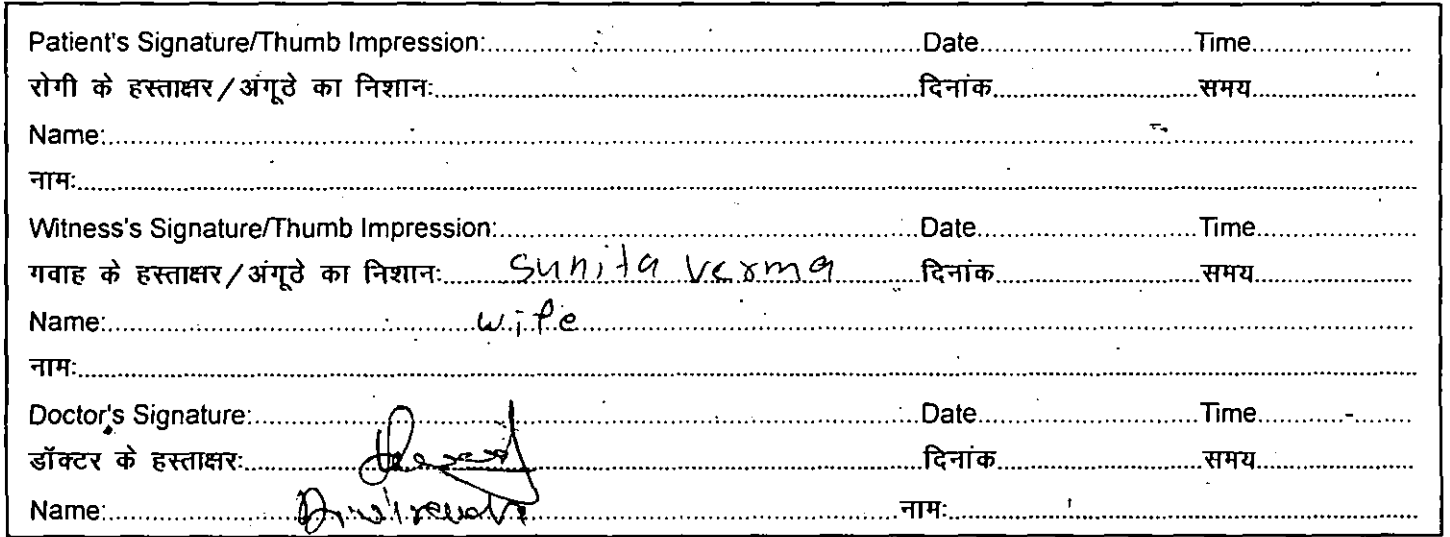 Patient's Signature/Thumb Impression:..........Date..........Time..........
रोगी के हस्ताक्षर/अंगूठे का निशानः..........दिनांक..........समय..........
Name:..........
नामः..........
Witness's Signature/Thumb Impression:..........Date..........Time..........
गवाह के हस्ताक्षर/अंगूठे का निशानः..........Sunita Verma..........दिनांक..........समय..........
Name:..........wife..........
नामः..........
Doctor's Signature:..........Date..........Time..........
डॉक्टर के हस्ताक्षरः..........दिनांक..........समय..........
Name:..........नामः..........